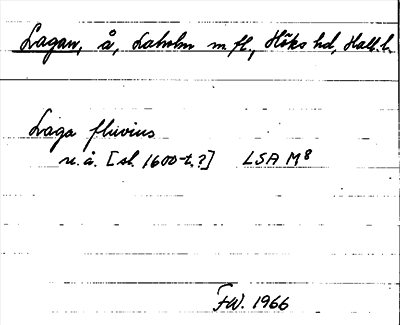 Lagan, å, Laholm m fl., Höks hd, Hall. l.
Laga fluvius
u. å. [sl. 1600-t.?] LSA M8
FW. 1966